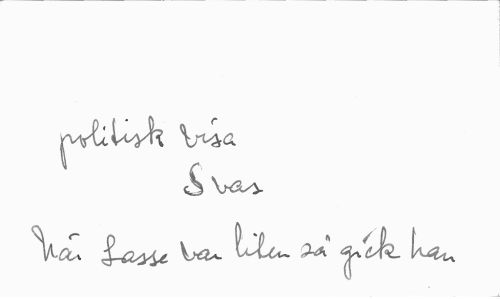 politisk visa
Svas
När Lasse var liten så gick han